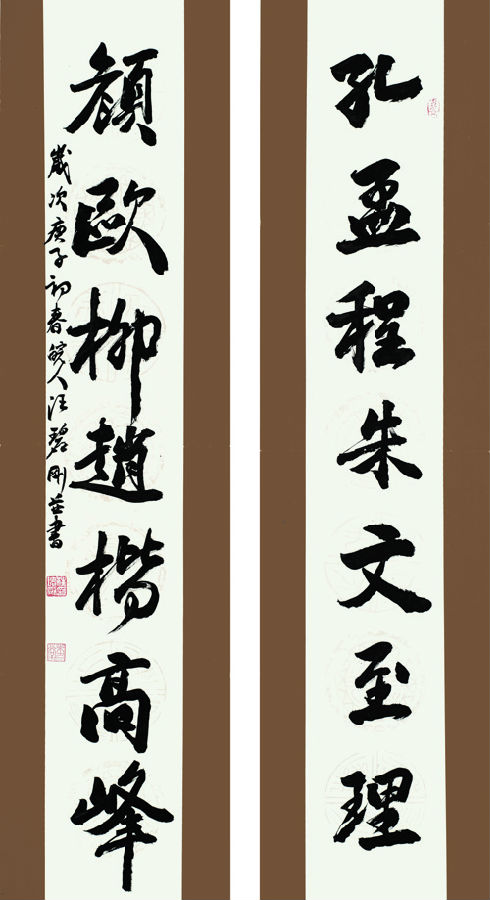 孔孟程朱文至理
顔歐柳趙楷高峰
歲次庚子初春皖人汪碧刚并書